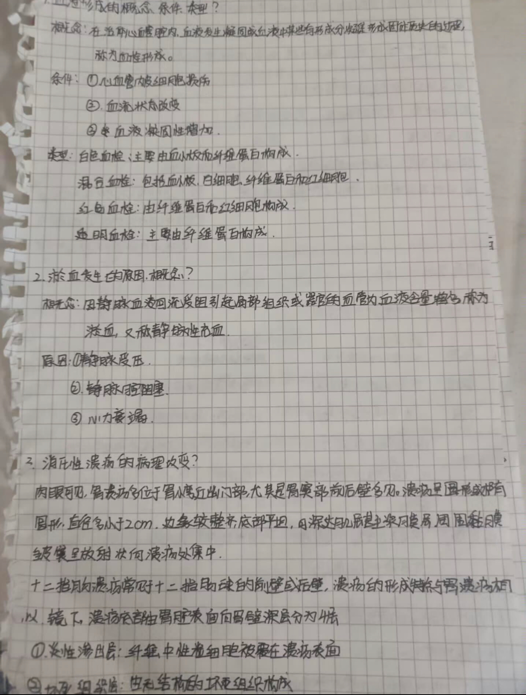 1.血栓形成的概念、条件、类型?
概念:在活体心血管腔内,血液发生凝固或血液中某些有形成分凝集形成固体质块的过程,
称为血栓形成。
条件:①心血管内皮细胞损伤
②血流状态改变
③血液凝固性增加.
类型:白色血栓:主要由血小板和纤维蛋白构成.
混合血栓:包括血小板、白细胞、纤维蛋白和红细胞.
红色血栓:由纤维蛋白和红细胞构成.
透明血栓:主要由纤维蛋白构成.
2.淤血发生的原因、概念?
概念:因静脉血液回流受阻引起局部组织或器官的血管内血液含量增多称为
淤血,又称静脉性充血.
原因:①静脉受压
②静脉腔阻塞.
③心力衰竭.
3.消化性溃疡的病理改变?
肉眼可见,胃溃疡多位于胃小弯近幽门部,尤其是胃窦部前后壁多见。溃疡呈圆形或椭圆
圆形,直径多小于2cm,边缘较整齐,底部平坦,
皱襞呈放射状向溃疡处集中.
十二指肠溃疡常见于十二指肠球部的前壁或后壁,溃疡的形成特点与胃溃疡相
似.镜下,溃疡底部由胃腔表面向胃壁深层分为4层
①炎性渗出层:纤维中性粒细胞被覆在溃疡表面
②坏死组织层:由无结构的坏死组织构成